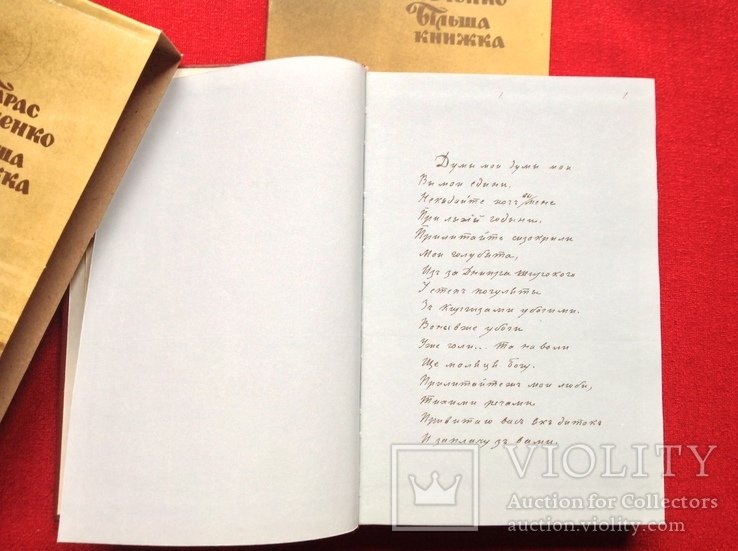 ченко
Більша
книжка
Тарас
ченко
ша
жка
1
1
Думы мои думы мои
Вы мои едыни.
Некыдайте хочь вы мене
При лыхій годыни.
Прилитайте сизокрыли
Мои голубята,
Изъ за Днипра широкого
У степъ погуляты
Зъ Киргизами убогими.
Воны вже убоги
Уже голи... та на воли
Ще молятця богу.
Прилитайтежъ мои любы,
Тихими речами
Привитаю васъ якъ дитокъ
И заплачу зъ вами.
VIOLITY
Auction for Collectors
auction.violity.com